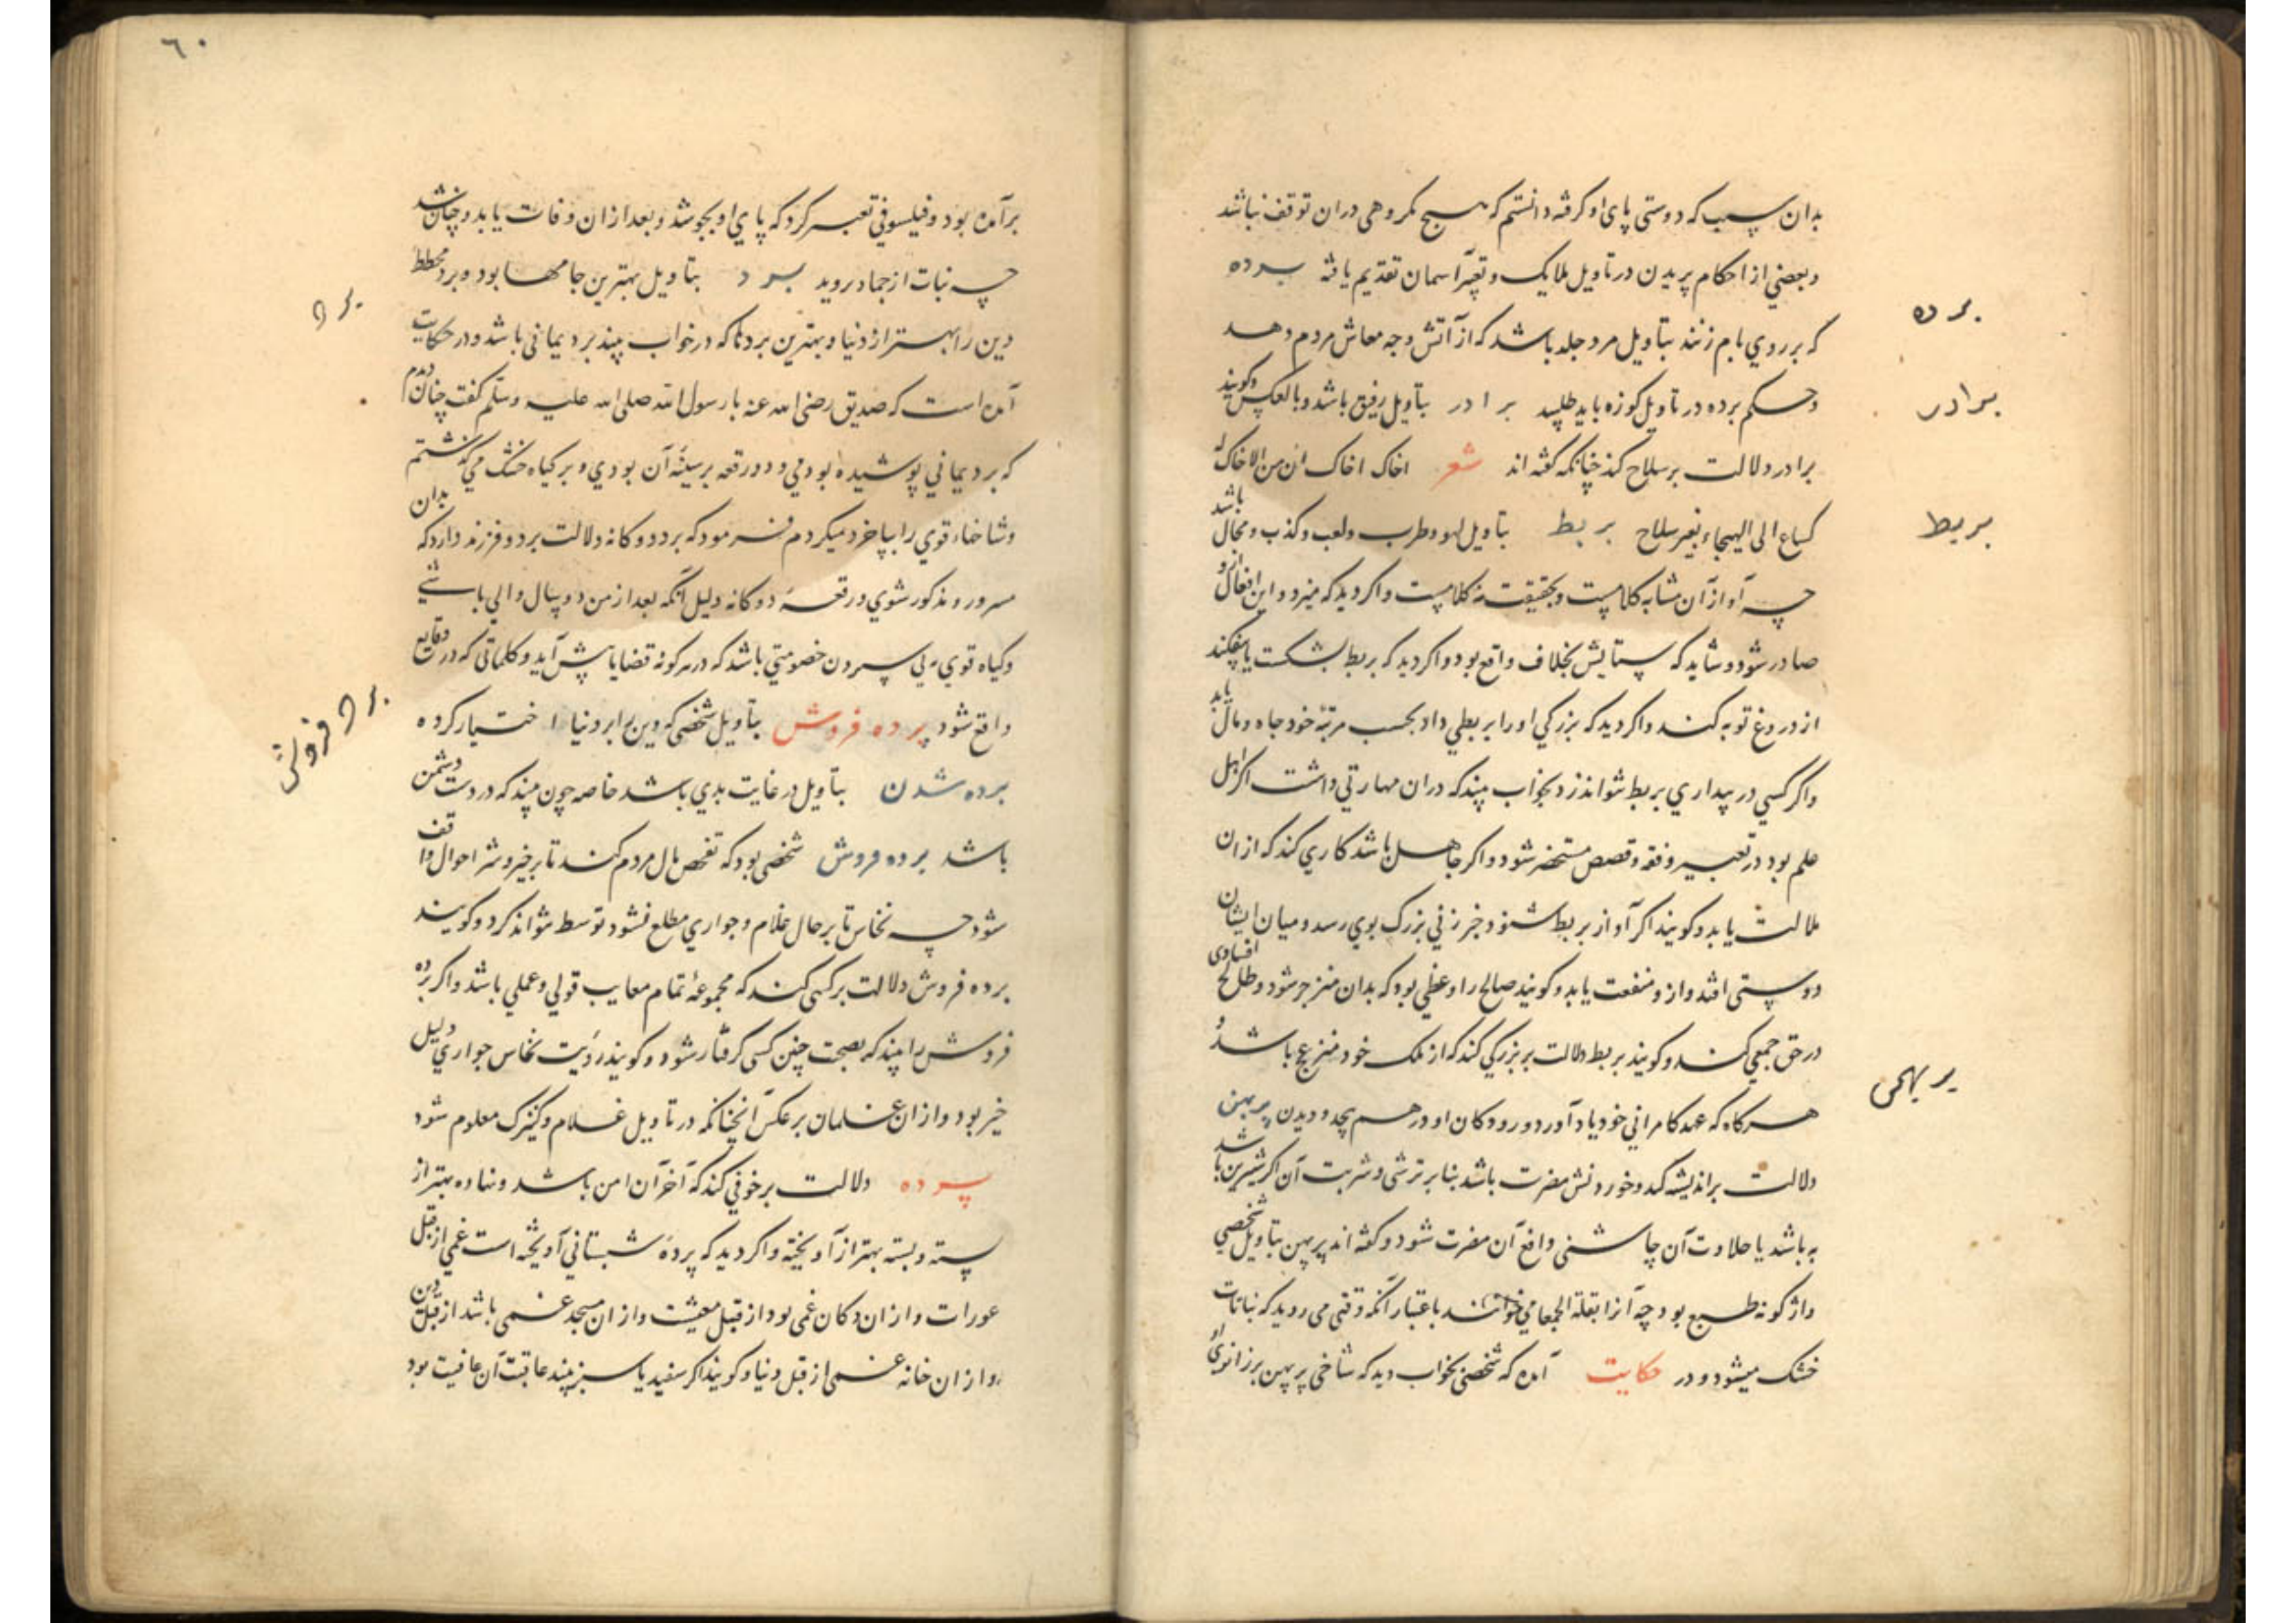 بدان سبب که دوستی پای او گرفته دانستم که هیچ مکروهی دران توقف نباشد
وبعضي از احکام پریدن در تاویل ملایک وتغیر آسمان تقدیم یافته برده
که بر روي بام زنند بتاویل مرد جلد باشد که از آتش وجه معاش مردم دهد
برده
وحکم برده در تاویل کوزه باید طلبید برادر بتاویل رفیق باشد وبالعکس وکویند
برادر
برادر دلالت بر سلاح کند چنانکه گفته اند شعر اخاک اخاک ان من لا اخاله
کساع الی الهیجاء بغیر سلاح بربط بتاویل لهو وطرب ولعب وکذب ومحال باشد
بربط
چه آواز آن مشابه کلامیست وبحقیقت نه کلامیست واکر دید که میزد و این افعال ازو
صادر شود وشاید که ستایش بخلاف واقع بود واکر دید که بربط بشکست یا بیفکند
از دروغ توبه کند واکر دید که بزرکي او را بربطي داد بحسب مرتبه خود جاه ومال یابد
واکر کسي در بیداري بربط نتواند زد بخواب بیند که دران مهارتي داشت اکر اهل
علم بود در تعبیر وفقه وقصص مستحضر شود واکر جاهل باشد کاري کند که ازان
ملالت یابد وکویند اکر آواز بربط شنود خبر زني بزرک بوي رسد ومیان ایشان
دوستی افتد وازو منفعت یابد وکویند صالح را وعظي بود که بدان منزجر شود وطالح افسادی
در حق جمعي کند وکویند بربط دلالت بر بزرکي کند که از ملک خود منزعج باشد و
هرکاه که عهد کامراني خود یاد آورد ورودکان او درهم پیچد ودیدن پرپهن
پرپهن
دلالت بر اندیشه کند وخوردنش مضرت باشد بنا بر ترشی وشربت آن اکر شیرین باشد
به باشد یا حلاوت آن چاشنی دافع آن مضرت شود وگفته اند پرپهن بتاویل شخصي
واژکونه طبع بود چه آنرا بقلة الحمقا می خوانند باعتبار آنکه وقتی می روید که نباتات
خشک میشود ودر حکایت آمده که شخصی بخواب دید که شاخی پرپهن بر زانوی او
٦٠
برآمده بود وفیلسوفي تعبیر کرد که پاي او بجوشد وبعد ازان وفات یابد وچنان شد
چه نبات از جماد روید برد بتاویل بهترین جامها بود وبرد مخطط
برد
دین را بهتر از دنیا وبهترین بردها که در خواب بیند برد یمانی باشد ودر حکایت
آمده است که صدیق رضی الله عنه با رسول الله صلی الله علیه وسلم کفت چنان دیدم
که برد یماني پوشیده بودمي ودو رقعه بر سینه آن بودي وبر کیاه خشک می کذشتم
وشاخهاء قوي را بپا خرد میکردم فرمود که برد دوکانه دلالت بر دو فرزند دارد که بدان
مسرور ومذکور شوي ورقعه دوکانه دلیل آنکه بعد از من دو سال والي باشے
وکیاه قوي پي سپردن خصومتي باشد که در هرکونه قضایا پیش آید وکلماتی که در وقایع
واقع شود برده فروش بتاویل شخصی که دین را بر دنیا اختیار کرده
برده فروش
برده شدن بتاویل در غایت بدي باشد خاصه چون بیند که در دست دشمن
باشد برده فروش شخصی بود که تفحص بال مردم کند تا بر خیر وشر احوال واقف
شود چه نخاس تا بر حال غلام وجواري مطلع نشود توسط نتواند کرد وکویند
برده فروش دلالت بر کسی کند که مجموعه تمام معایب قولي وعملي باشد واکر برده
فروش را بیند که بصحبت چنین کسی گرفتار شود وکویند رؤیت نخاس جواري دلیل
خیر بود وازان غلمان بر عکس آنچنانکه در تاویل غلام وکنیزک معلوم شود
پرده دلالت بر خوفي کند که آخر آن امن باشد ونهاده بهتر از
بسته وبسته بهتر از آویخته واکر دید که پرده شبستاني آویخته است غمي از قبل
عورات وازان دکان غمی بود از قبل معیشت وازان مسجد غمی باشد از قبل دین
وازان خانه غمی از قبل دنیا وکویند اکر سفید یا سبز بیند عاقبت آن عافیت بود